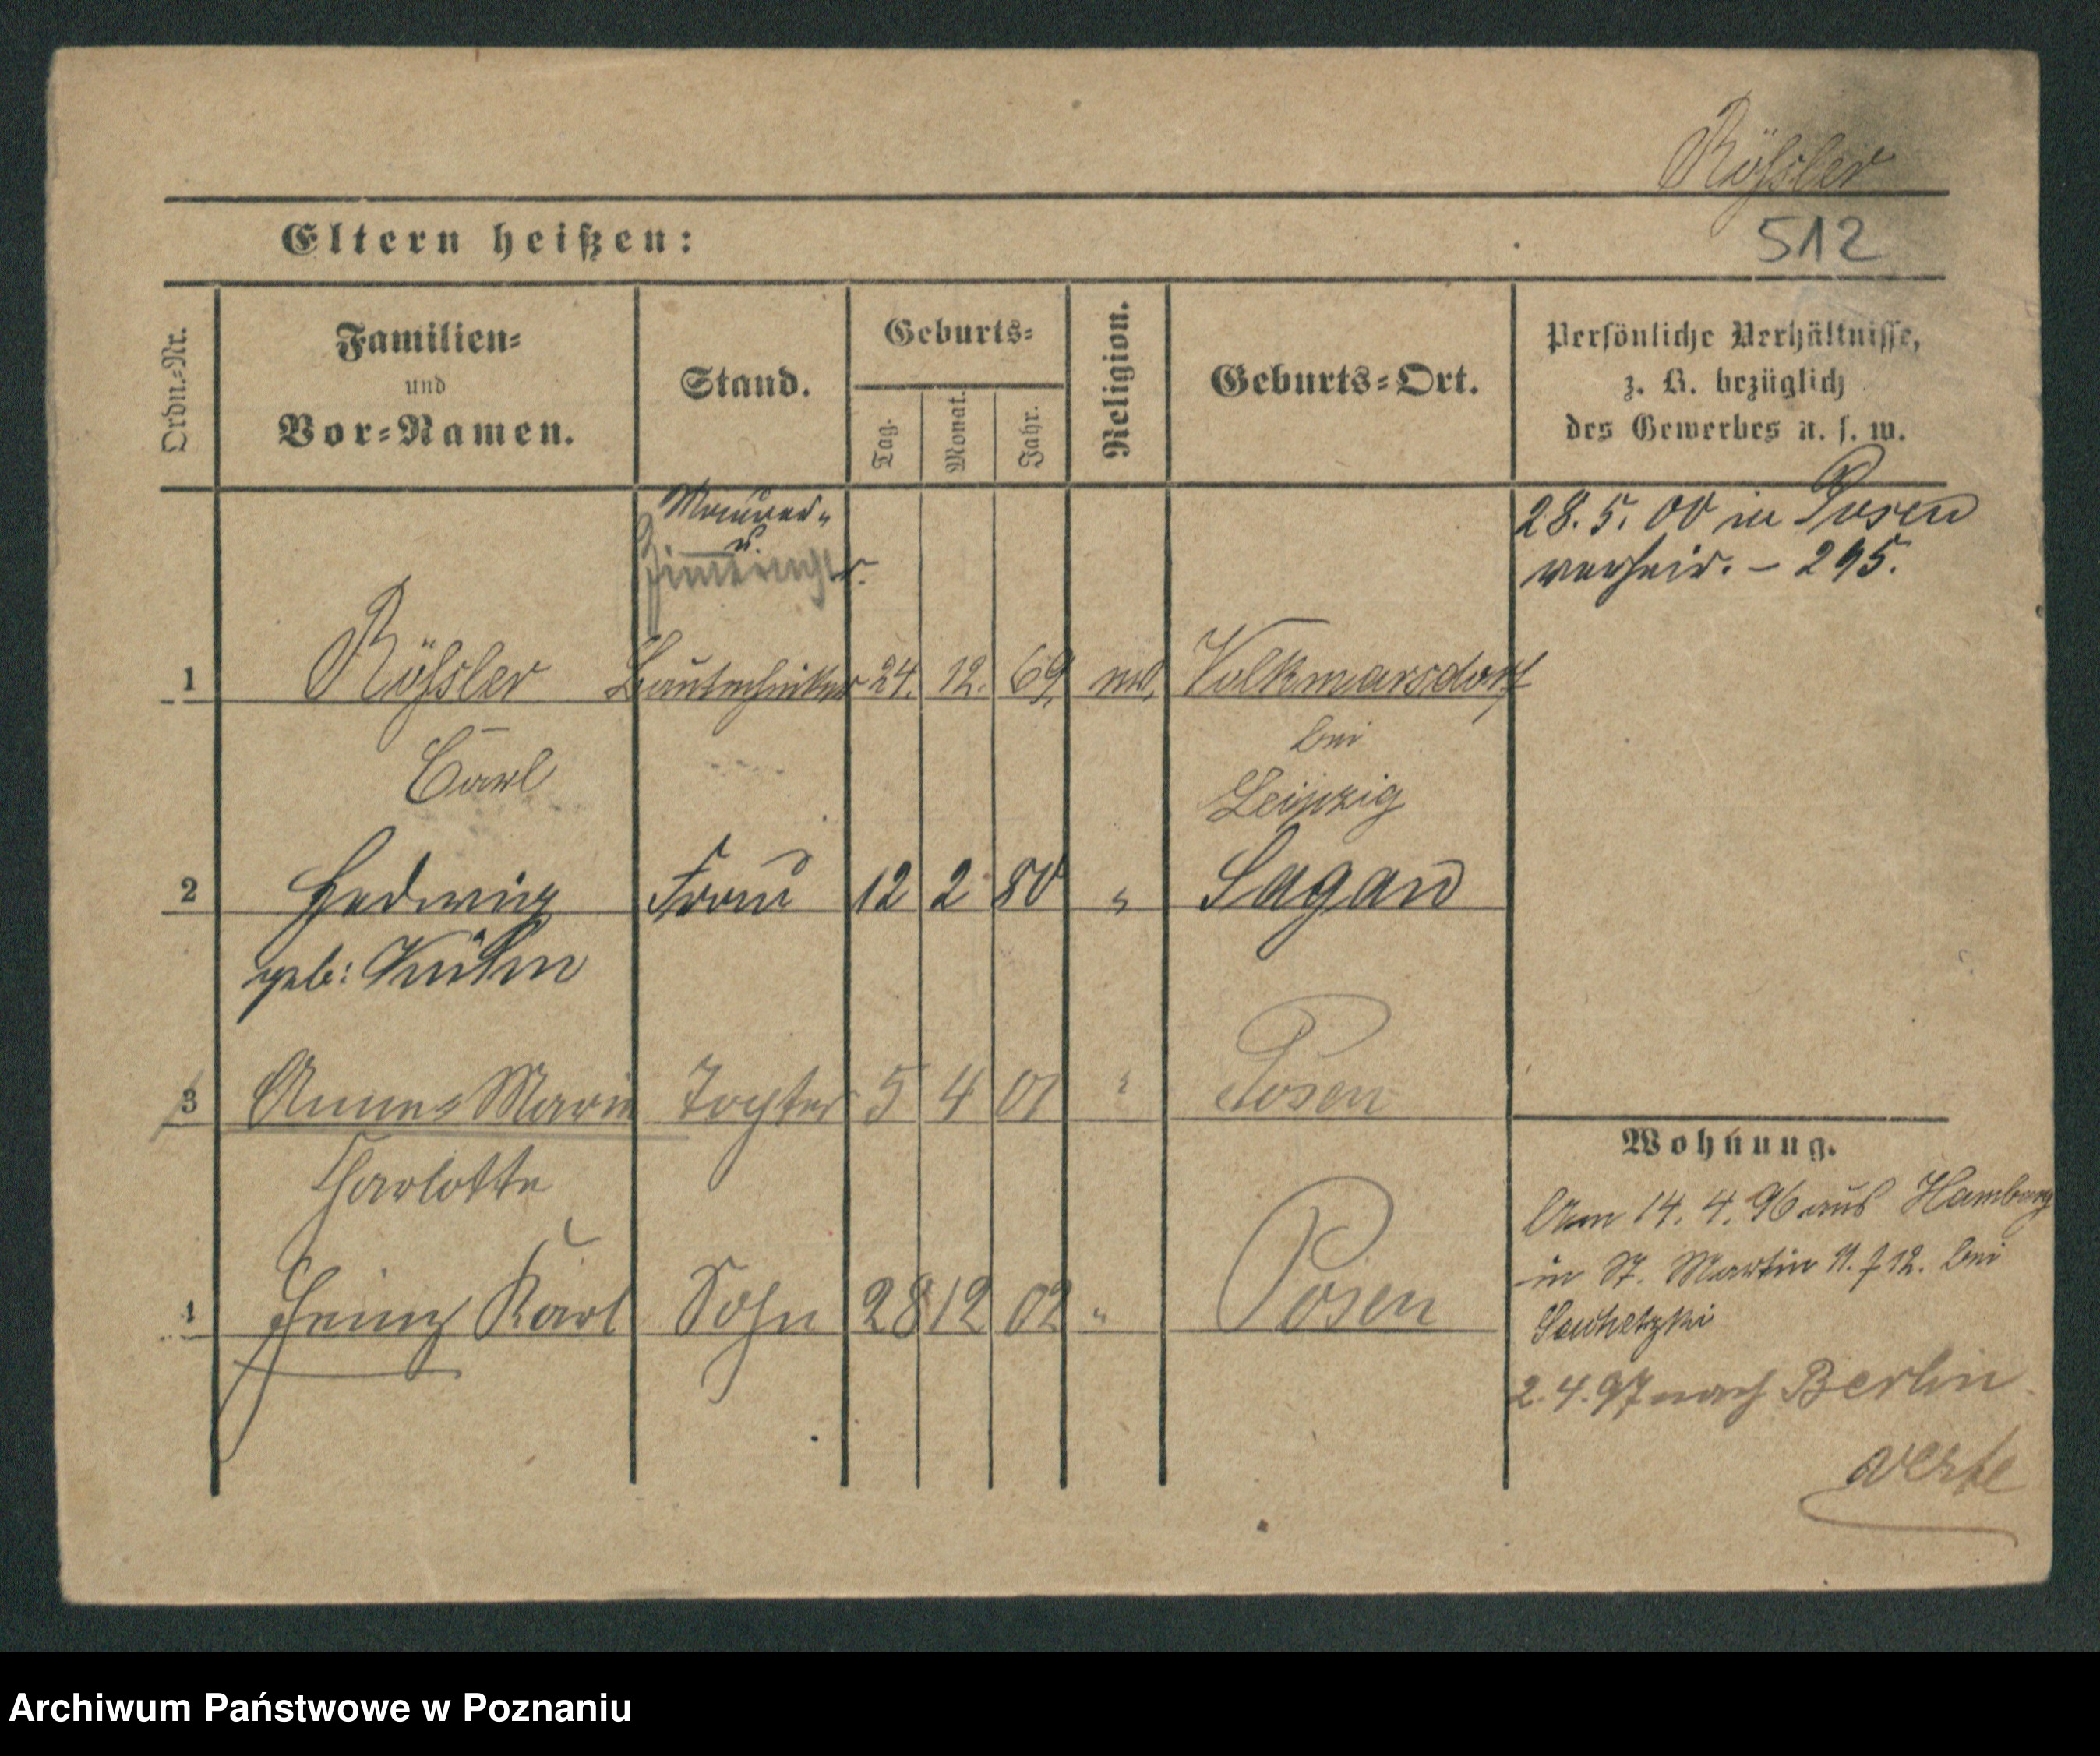 Rößler
512
Eltern heißen:
Ordn.-Nr.
Familien-
und
Vor-Namen.
Stand.
Geburts-
Tag.
Monat.
Jahr.
Religion.
Geburts-Ort.
Persönliche Verhältnisse,
z. B. bezüglich
des Gewerbes u. s. w.
Maurer-
u.
28. 5. 00 in Posen
verheir. – 295.
1 Rößler Bautechniker 24. 12. 69. Volkmarsdorf
Carl
bei
Leipzig
2 Hedwig Frau 12 2 80 " Sagan
geb: Kühn
3 Anne-Marie Tochter 5 4 01 " Posen
Charlotte
4 Heinz Karl Sohn 28 12 02 " Posen
Wohnung.
Am 14. 4. 96 aus Hamburg
in St. Martin 12. bei
2. 4. 97 nach Berlin
verte
Archiwum Państwowe w Poznaniu